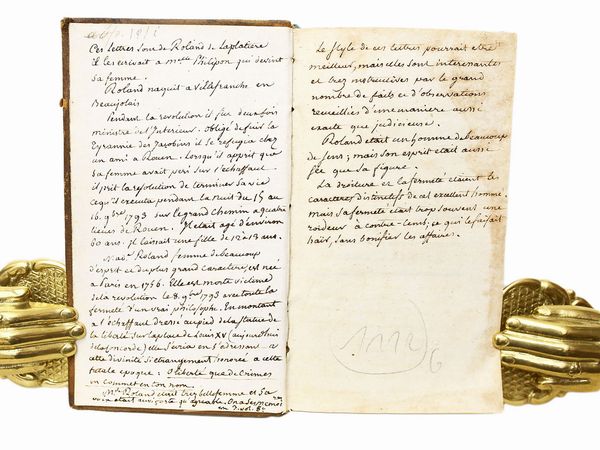 Ces Lettres sont de Roland de Laplatiere
il les ecrivait a Melle Philipon qui devint
sa femme.
Roland naquit a Villefranche en
Beaujolais
Pendant la revolution il fut deux fois
ministre de l'Interieur. obligé de fuir la
Tyrannie des Jacobins il se refugia chez
un ami a Rouen. Lorsqu'il apprit que
sa femme avait peri sur l'echaffaut
il prit la resolution de terminer sa vie
ce qu'il executa pendant la nuit du 15 au
16. 9bre 1793 sur le grand chemin a quatre
lieues de Rouen. Il etait agé d'environ
60 ans. il laissait une fille de 12 a 13 ans.
Made Roland femme de beaucoup
d'esprit et du plus grand caractere, est née
a Paris en 1756. Elle est morte victime
de la revolution le 8. 9bre 1793 avec toute la
fermeté d'un vrai philosophe. En montant
a l'échaffaut dressé au pied de la statue de
la liberté sur la place de Louis XV (aujourdhui
de la Concorde) elle s'ecria en s'adressant a
cette divinité si etrangement honorée a cette
fatale epoque: O liberté que de Crimes
on commet en ton nom.
Mde Roland etait tres belle femme et sa
voix etait aussi forte qu'agreable. On a ses memoires
en 3. vol. 8°
Le Style de ces lettres pourrait etre
meilleur, mais elles sont interessantes
et trez instructives par le grand
nombre de faits et d'observations
recueillies d'une maniere aussi
exacte que judicieuse.
Roland etait un homme de beaucoup
de sens; mais son esprit etait aussi
sec que sa figure.
La droiture et la fermeté etaient les
caracteres distinctifs de cet excellent homme.
mais sa fermeté etait trop souvent une
roideur a contre-tems; ce qui le faisait
haïr, sans bonifier les affaires.